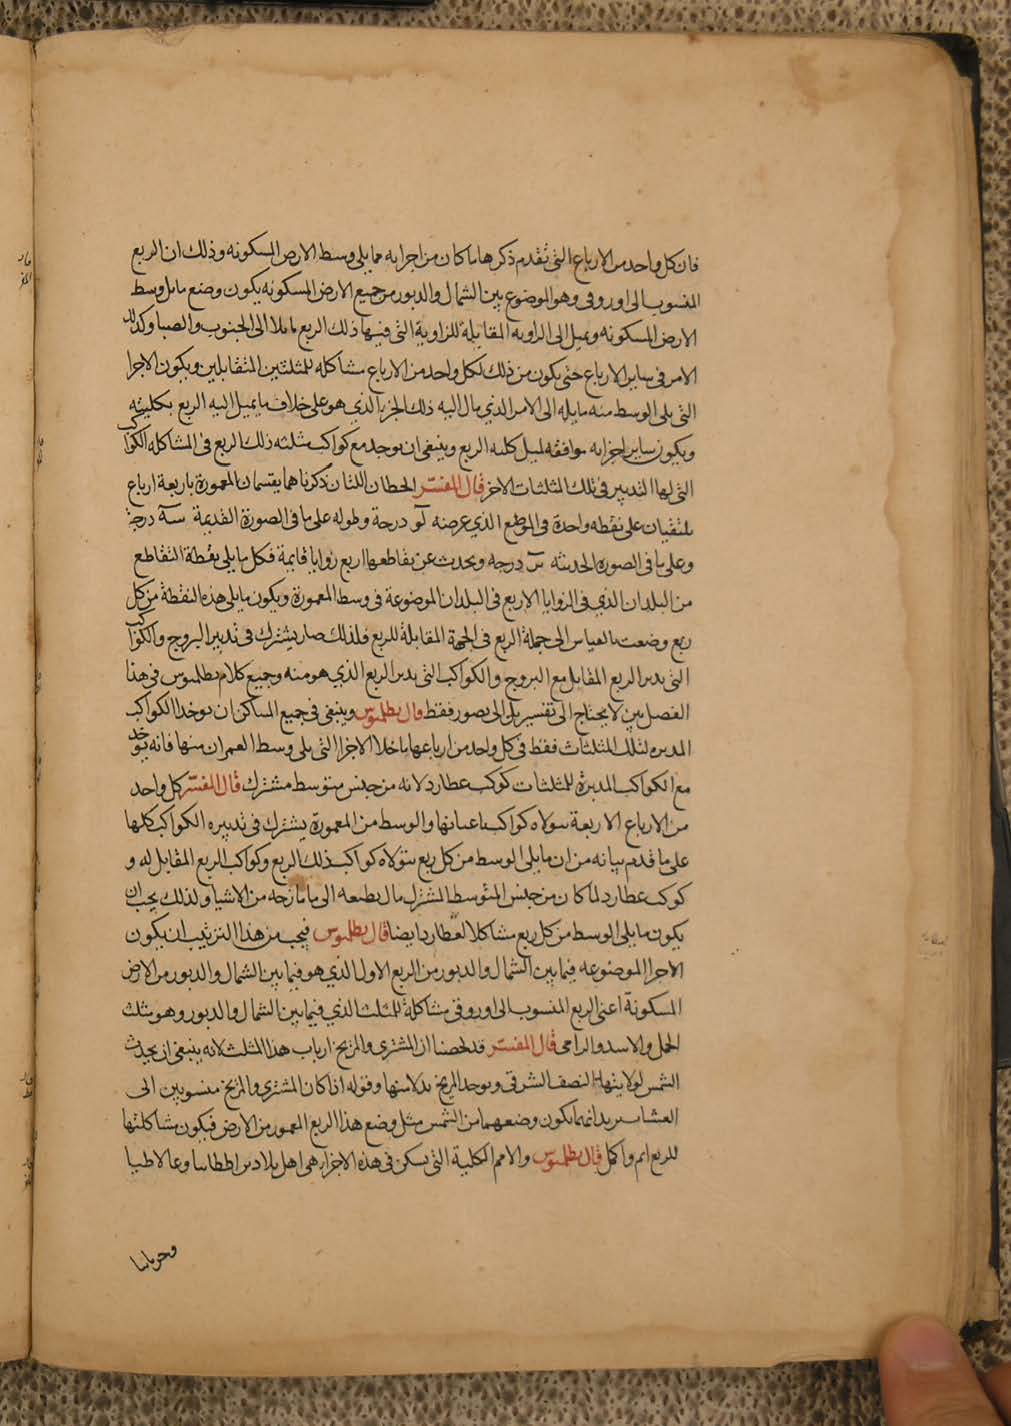 فان كل واحد من الارباع التي تقدم ذكرها ما كان من اجزايه مما يلي وسط الارض المسكونه وذلك ان الربع
المنسوب الى اوروفى وهو الموضوع بين الشمال والدبور من جميع الارض المسكونه يكون وضع ما يلي وسط
الارض المسكونه ويميل الى الزاويه المقابلة للزاوية التي فيها ذلك الربع مايلا الى الجنوب والصبا وكذلك
الامر في ساير الارباع حتى يكون من ذلك لكل واحد من الارباع مشاكله للمثلثتين المتقابلين ويكون الاجزا
التي يلي الوسط منه مايله الى الامر الذي مال اليه ذلك الجزء الذي هو على خلاف ما يميل اليه الربع بكليته
ويكون ساير اجزايه موافقه لميل كليه الربع وينبغي ان يوجد مع كواكب مثلثه ذلك الربع في المشاكله الكواكب
التي لها التدبير في تلك المثلثات الاخر قال المفسر الخطان اللذان ذكرنا هما يقسمان المعمورة باربعة ارباع
يلتقيان على نقطه واحدة في الموضع الذي عرضه لو درجة وطوله على ما في الصورة القديمة سه درجة
وعلى ما في الصورة الحديثه درجه ويحدث عن تقاطعها اربع زوايا قايمة فكل ما يلي نقطة التقاطع
من البلدان الذي في الزوايا الاربع في البلدان الموضوعة في وسط المعمورة ويكون ما يلي هذه النقطة من كل
ربع وضعت بالقياس الى جملة الربع في الجهة المقابلة للربع فلذلك صار يشترك في تدبير البروج والكواكب
التي يدبر الربع المقابل مع البروج والكواكب التي يدبر الربع الذي هو منه وجميع كلام بطلميوس في هذا
الفصل بين لا يحتاج الى تفسير بل الى تصور فقط قال بطلميوس وينبغي في جميع المساكن ان يوخذ الكواكب
المدبره لتلك المثلثات فقط في كل واحد من ارباعها ما خلا الاجزا التي يلي وسط العمران منها فانه يوخذ
مع الكواكب المدبرة للمثلثات كوكب عطارد لانه من جنس متوسط مشترك قال المفسر كل واحد
من الارباع الاربعة يتولاه كواكب باعيانها والوسط من المعمورة يشترك في تدبيره الكواكب كلها
على ما قدم بيانه من ان ما يلي الوسط من كل ربع يتولاه كواكب ذلك الربع وكواكب الربع المقابل له و
كوكب عطارد لما كان من جنس المتوسط المشترك مال بطبعه الى ما مازجه من الاشيا ولذلك يجب ان
يكون ما يلي الوسط من كل ربع مشاكلا لعطارد ايضا قال بطلميوس فيجب من هذا الترتيب ان يكون
الاجزا الموضوعه فيما بين الشمال والدبور من الربع الاول الذي هو فيما بين الشمال والدبور من الارض
المسكونة اعني الربع المنسوب الى اوروفى مشاكلة للمثلث الذي فيما بين الشمال والدبور وهو مثلث
الحمل والاسد والرامي قال المفسر قد لخصنا ان المشتري والمريخ ارباب هذا المثلث لانه ينبغي ان يحدث
الشمس لولايتها النصف الشرقي ويوجد المريخ بدلا منها وقوله اذا كان المشتري والمريخ منسوبين الى
العشيات يريد انهما يكون وضعهما من الشمس مثل وضع هذا الربع المعمور من الارض فيكون مشاكلتها
للربع اتم واكمل قال بطلميوس والامم الكلية التي يسكن في هذه الاجزا هي اهل بلاد